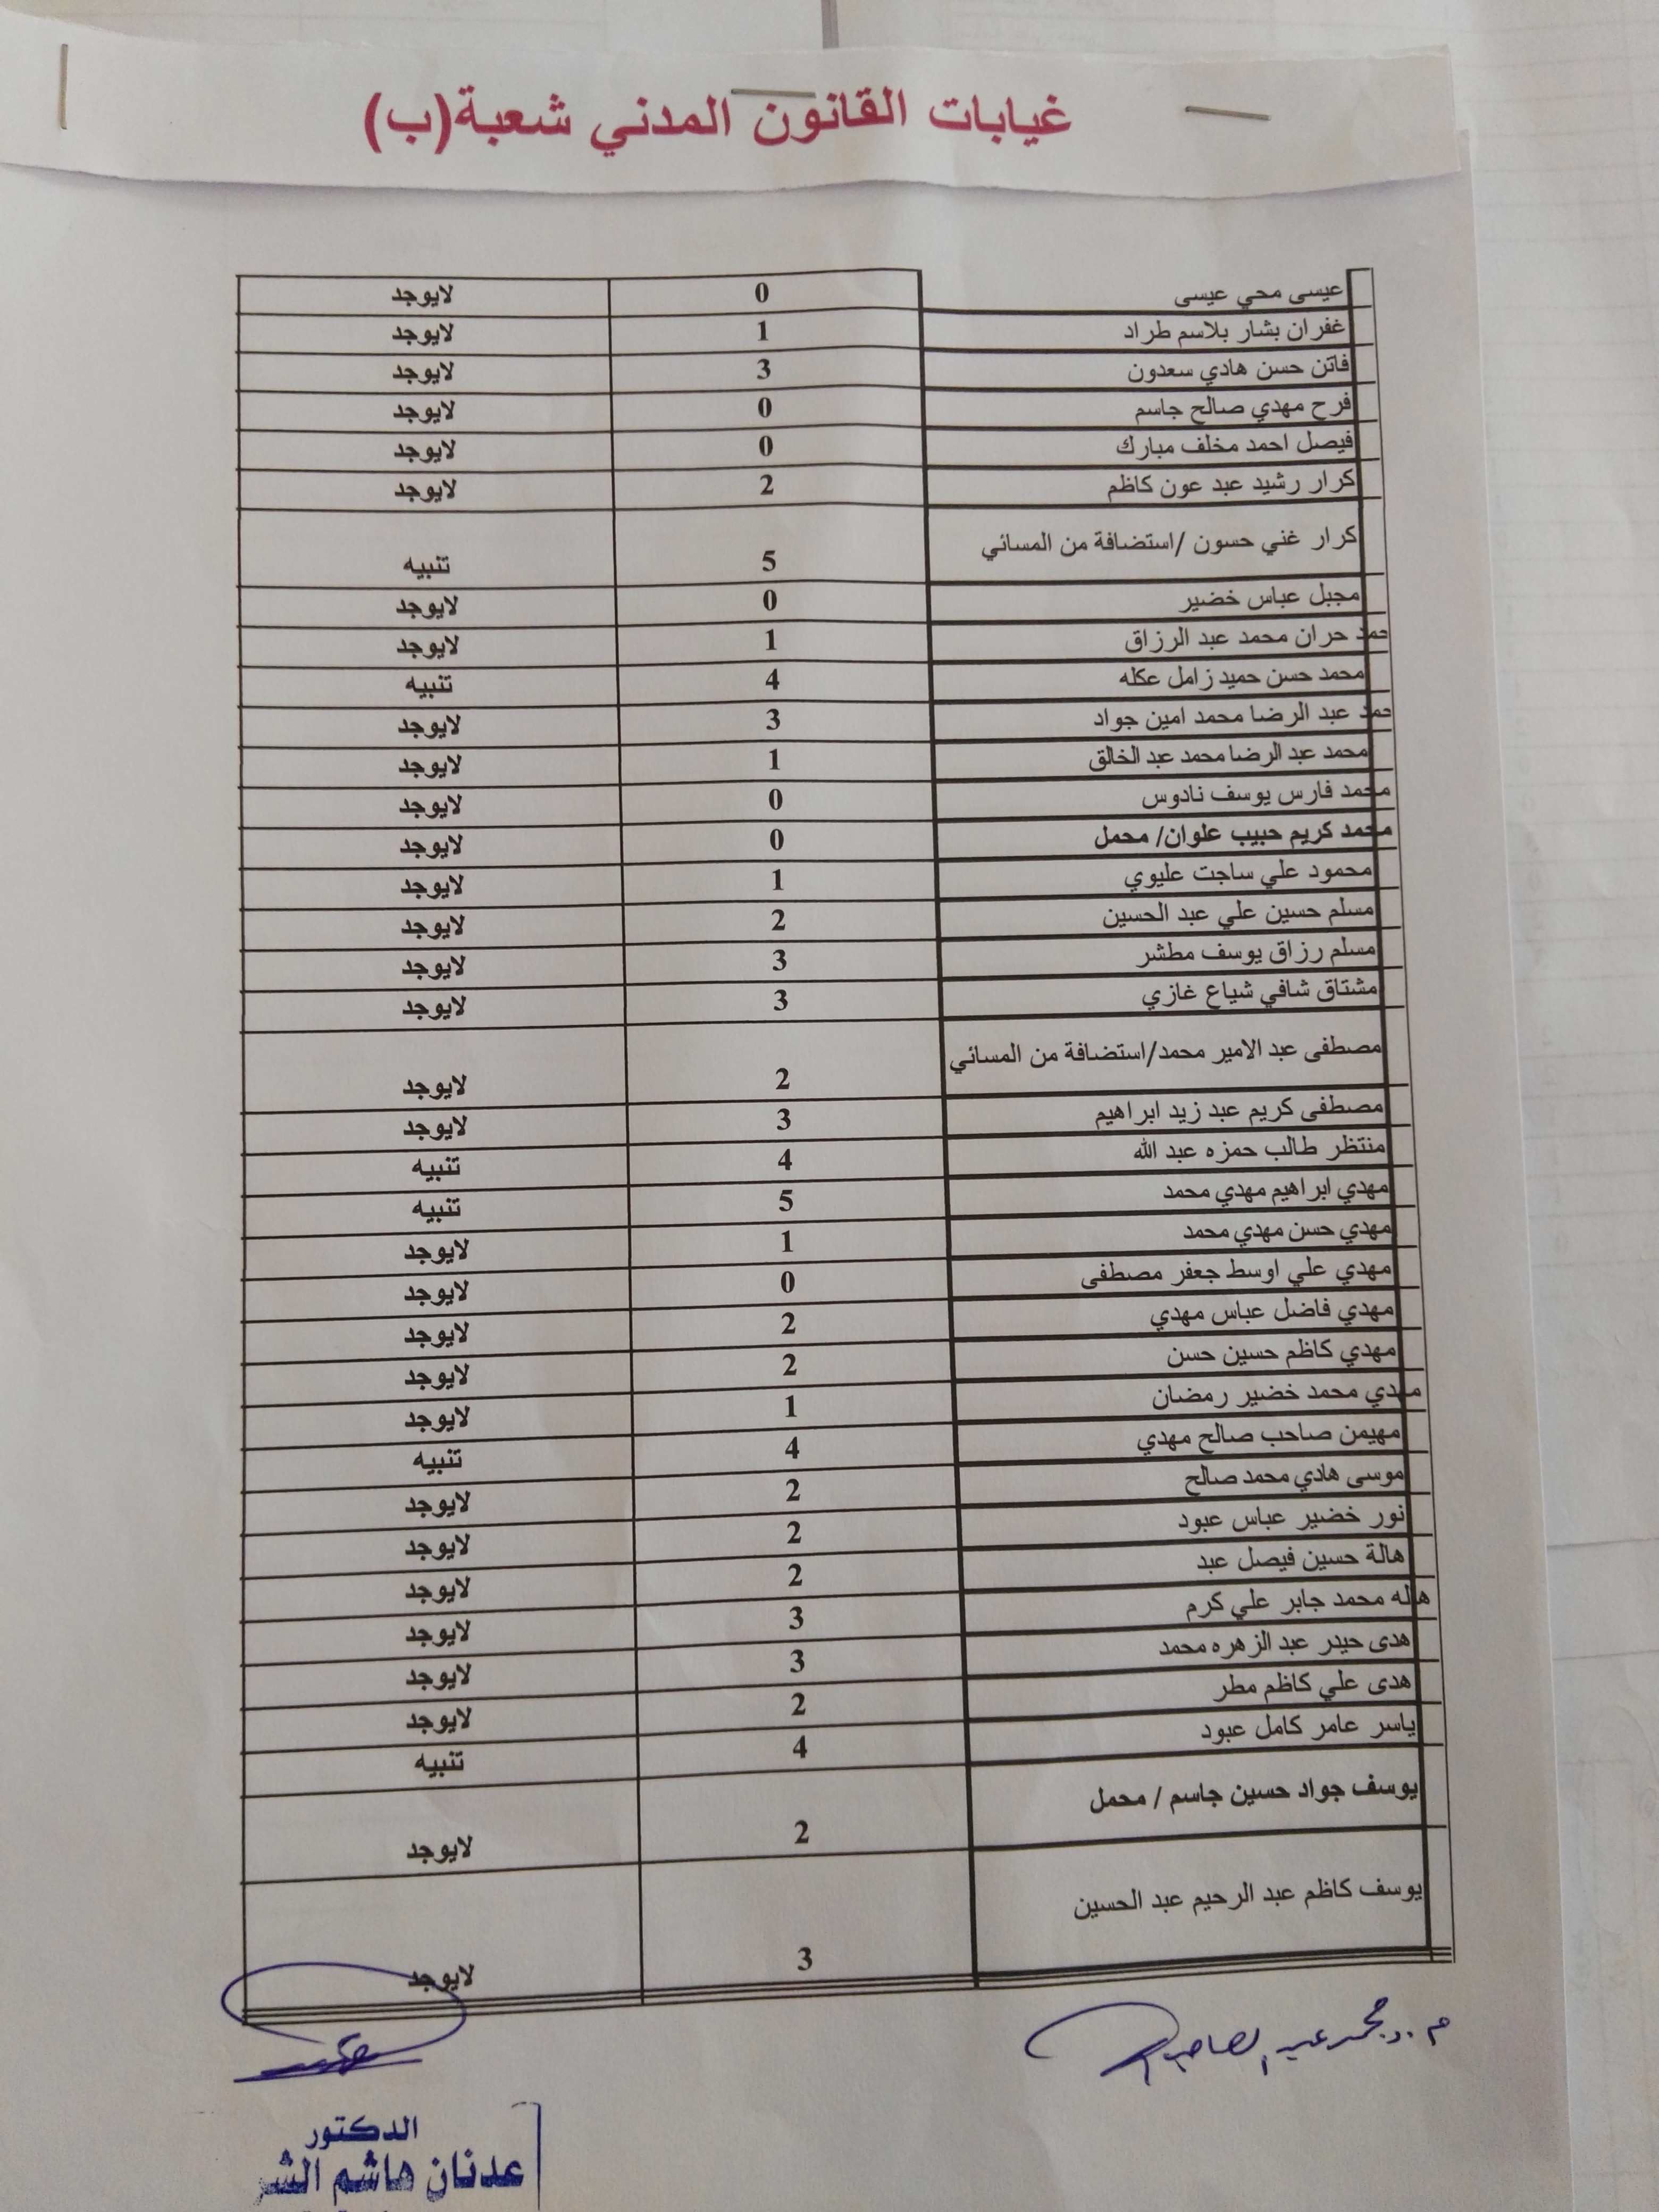 غيابات القانون المدني شعبة(ب)
عيسى محي عيسى 0 لايوجد
غفران بشار بلاسم طراد 1 لايوجد
فاتن حسن هادي سعدون 3 لايوجد
فرح مهدي صالح جاسم 0 لايوجد
فيصل احمد مخلف مبارك 0 لايوجد
كرار رشيد عبد عون كاظم 2 لايوجد
كرار غني حسون /استضافة من المسائي 5 تنبيه
مجبل عباس خضير 0 لايوجد
حمد حران محمد عبد الرزاق 1 لايوجد
محمد حسن حميد زامل عكله 4 تنبيه
حمد عبد الرضا محمد امين جواد 3 لايوجد
محمد عبد الرضا محمد عبد الخالق 1 لايوجد
محمد فارس يوسف نادوس 0 لايوجد
محمد كريم حبيب علوان/ محمل 0 لايوجد
محمود علي ساجت عليوي 1 لايوجد
مسلم حسين علي عبد الحسين 2 لايوجد
مسلم رزاق يوسف مطشر 3 لايوجد
مشتاق شافي شياع غازي 3 لايوجد
مصطفى عبد الامير محمد/استضافة من المسائي 2 لايوجد
مصطفى كريم عبد زيد ابراهيم 3 لايوجد
منتظر طالب حمزه عبد الله 4 تنبيه
مهدي ابراهيم مهدي محمد 5 تنبيه
مهدي حسن مهدي محمد 1 لايوجد
مهدي علي اوسط جعفر مصطفى 0 لايوجد
مهدي فاضل عباس مهدي 2 لايوجد
مهدي كاظم حسين حسن 2 لايوجد
مهدي محمد خضير رمضان 1 لايوجد
مهيمن صاحب صالح مهدي 4 تنبيه
موسى هادي محمد صالح 2 لايوجد
نور خضير عباس عبود 2 لايوجد
هالة حسين فيصل عبد 2 لايوجد
هاله محمد جابر علي كرم 3 لايوجد
هدى حيدر عبد الزهره محمد 3 لايوجد
هدى علي كاظم مطر 2 لايوجد
ياسر عامر كامل عبود 4 تنبيه
يوسف جواد حسين جاسم / محمل 2 لايوجد
يوسف كاظم عبد الرحيم عبد الحسين 3 لايوجد
م.د محمد عبد الصاحب
الدكتور
عدنان هاشم الشر